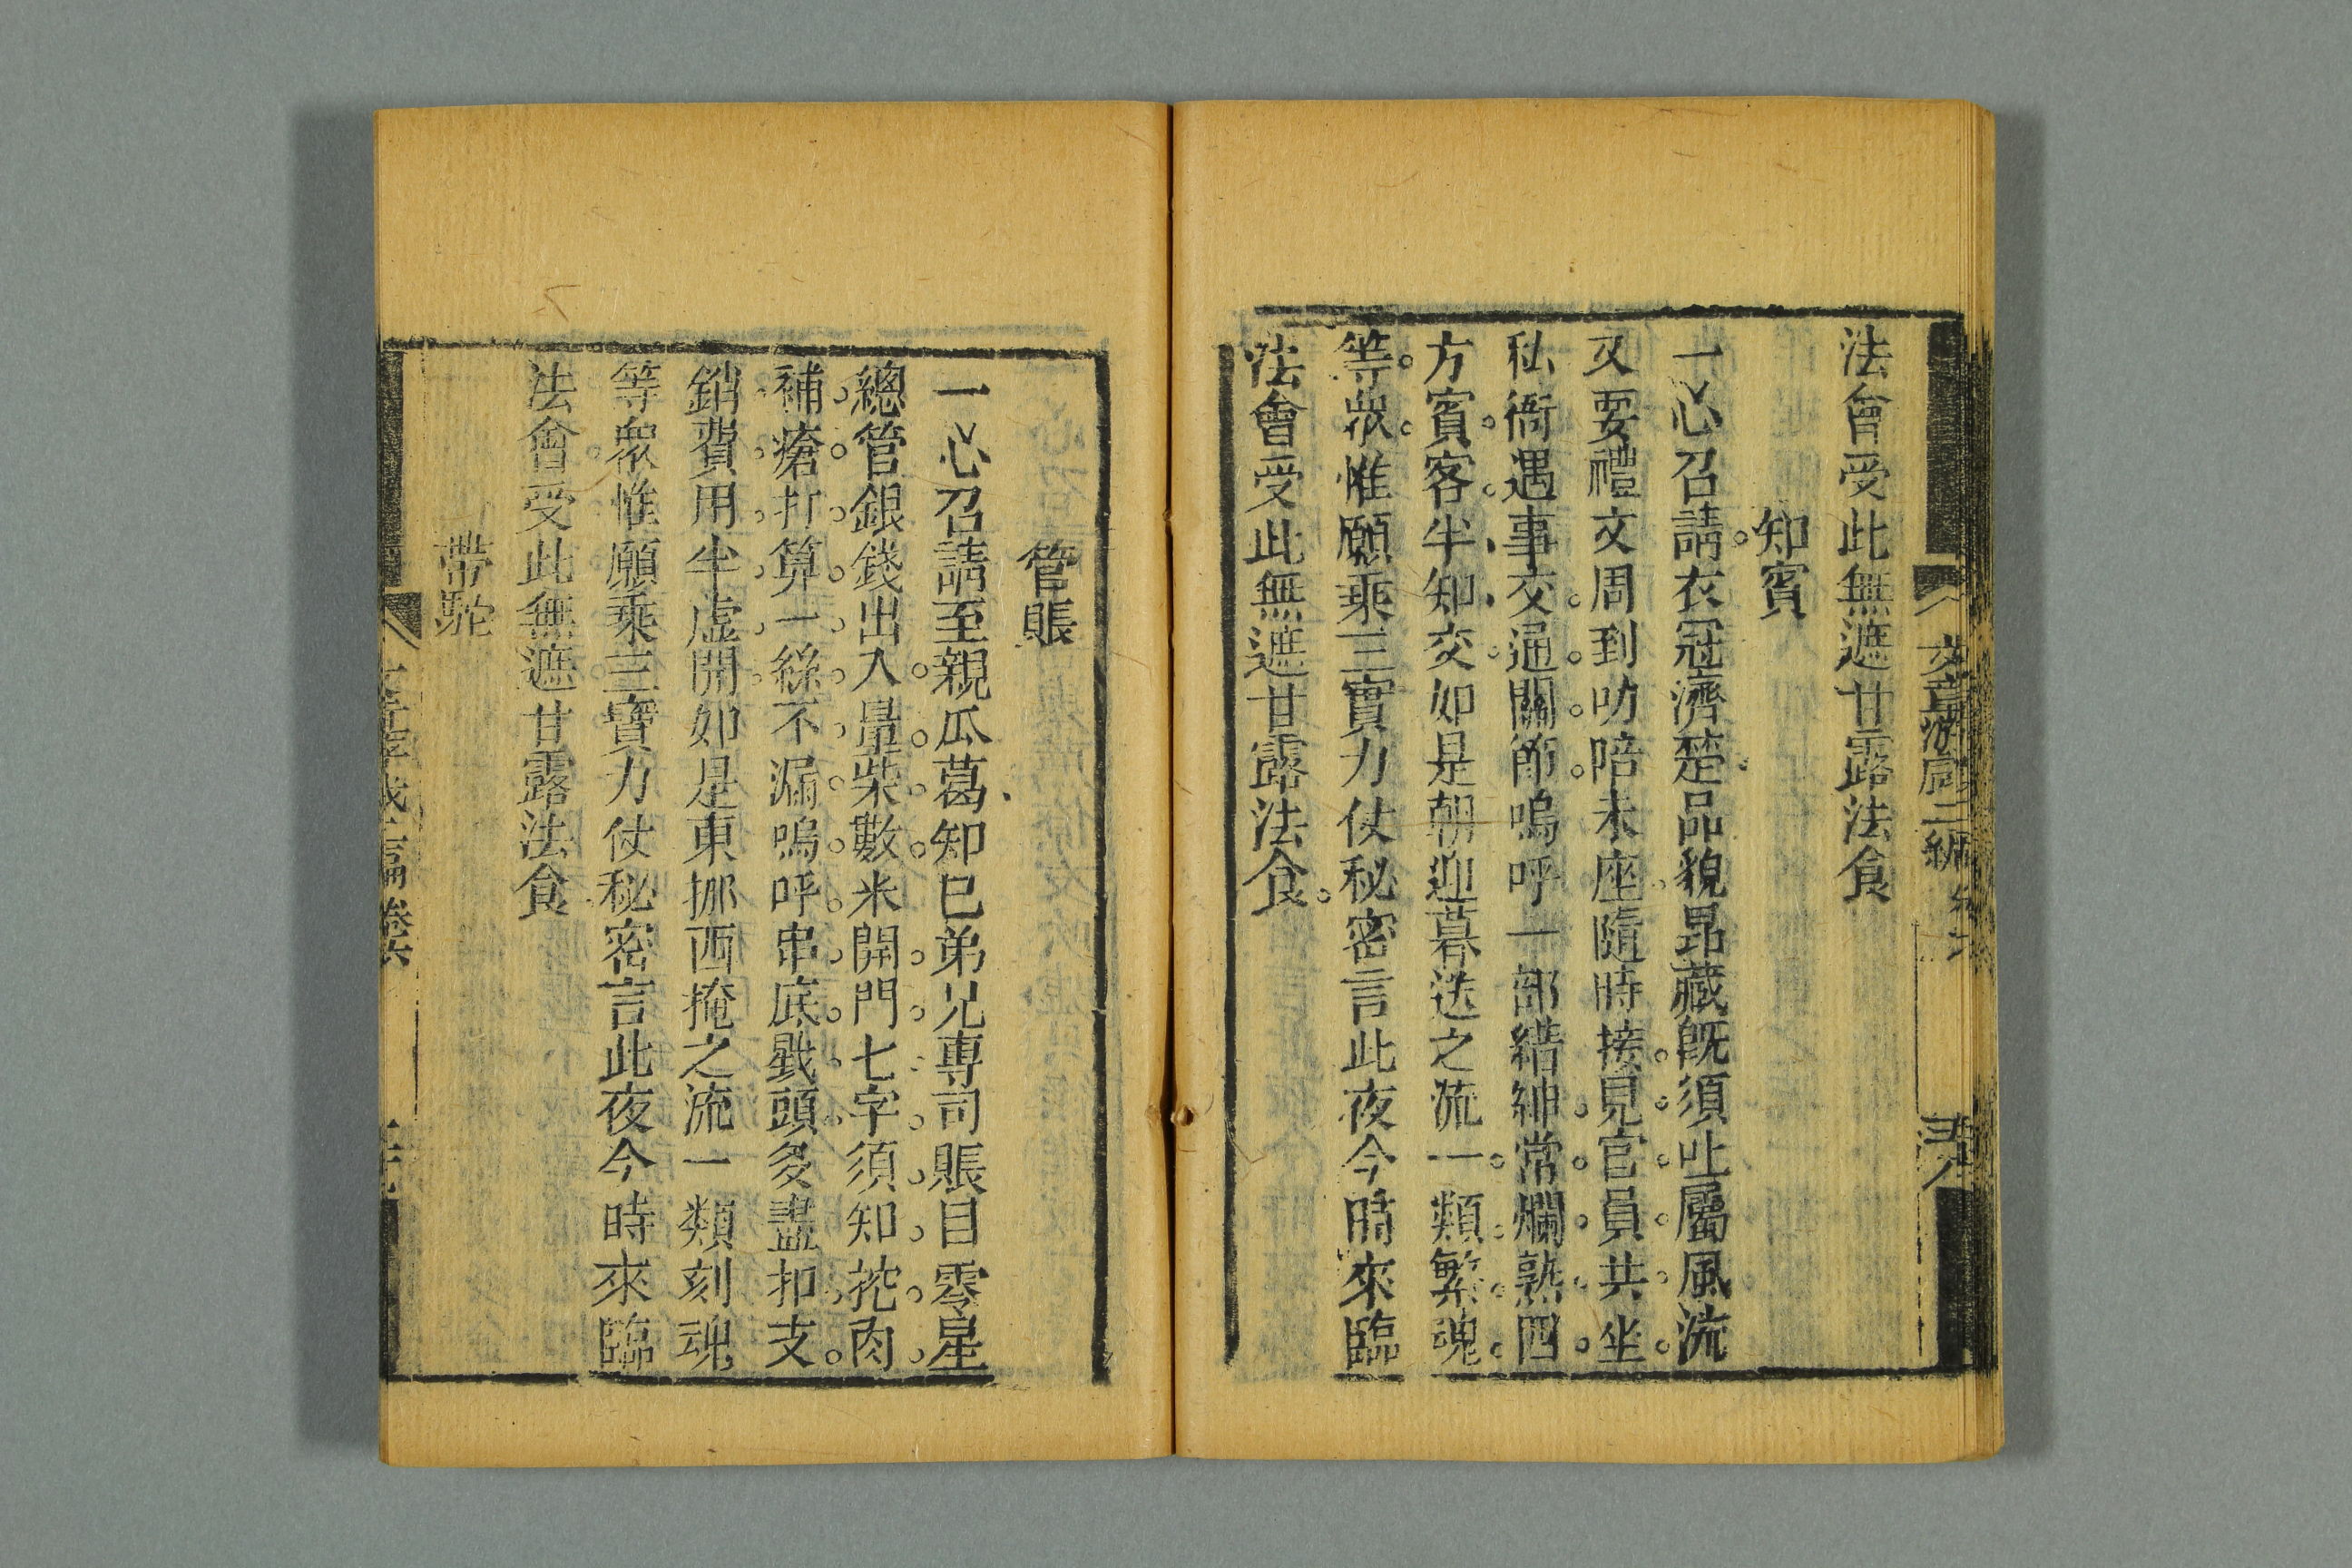 法會受此無遮甘露法食
知賓
一心召請衣冠濟楚品貌昂藏旣須吐屬風流
又要禮文周到叻陪末座隨時接見官員共坐
私衙遇事交通關節嗚呼一部縉紳常爛熟四
方賓客半知交如是朝迎暮送之流一類繁魂
等衆惟願乘三寶力仗秘密言此夜今時來臨
法會受此無遮甘露法食
管賬
一心召請至親瓜葛知已弟兄專司賬目零星
總管銀錢出入量柴數米開門七字須知挖肉
補瘡打算一絲不漏嗚呼串底戥頭多盡扣支
銷費用半虛開如是東挪西掩之流一類刻魂
等衆惟願乘三寶力仗秘密言此夜今時來臨
法會受此無遮甘露法食
帶駝
卷六